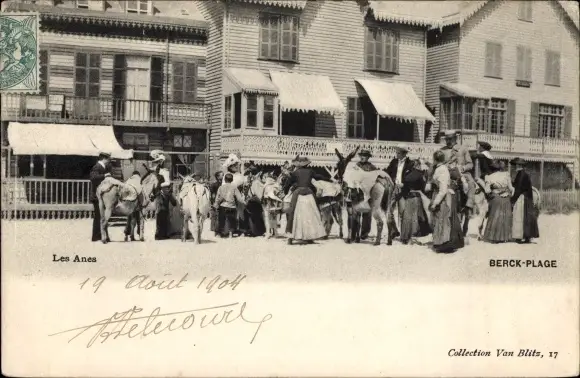 Les Anes
BERCK-PLAGE
19 Août 1904
Delcourt
Collection Van Blitz, 17